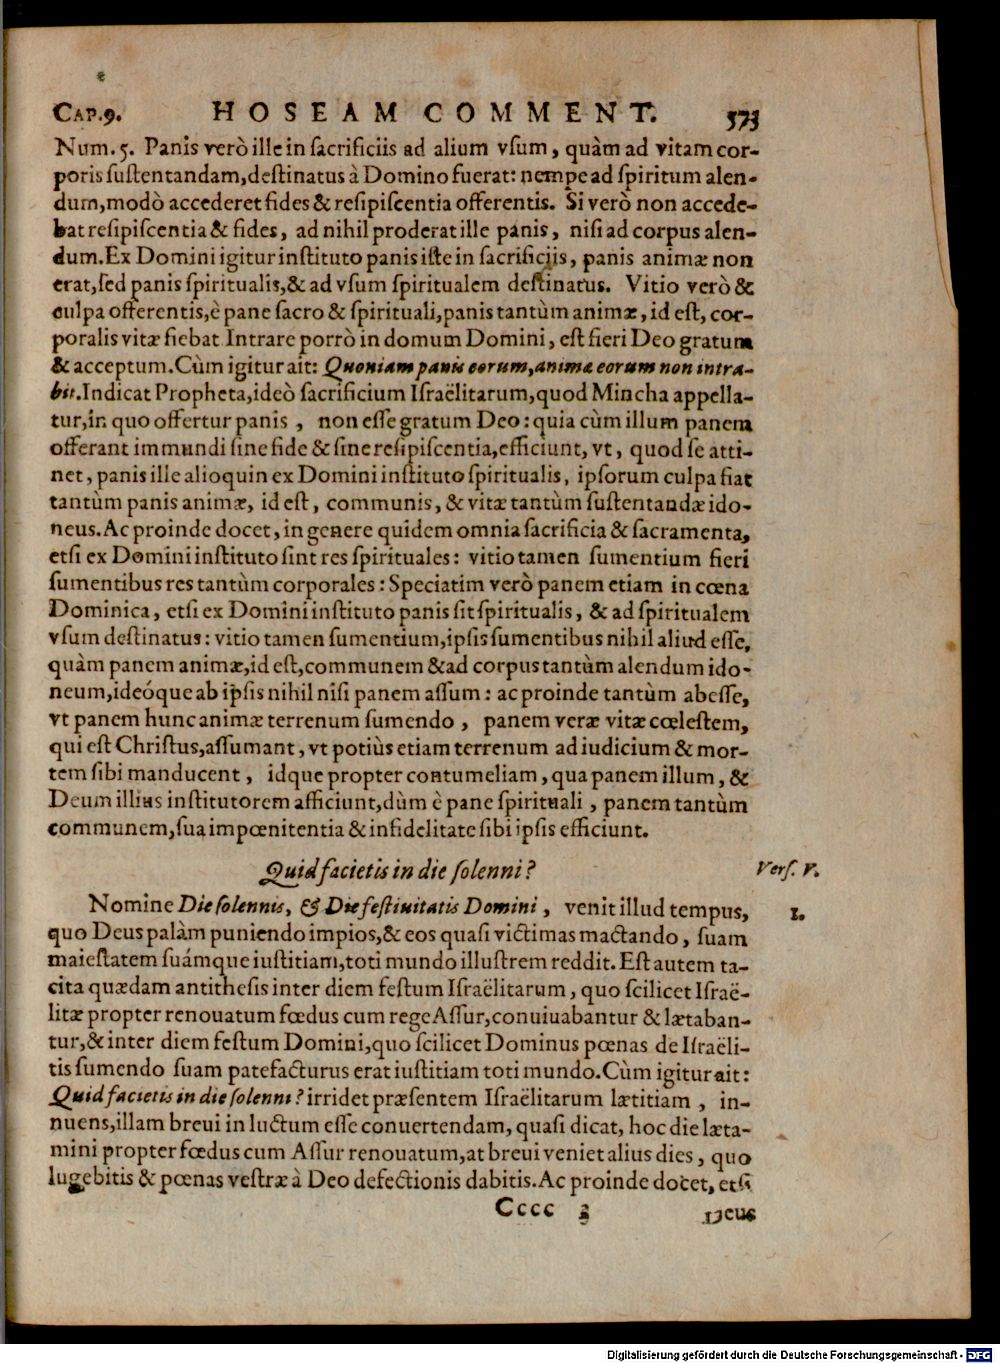 CAP.9. HOSEAM COMMENT. 573
Num. 5. Panis verò ille in sacrificiis ad alium vsum, quàm ad vitam cor-
poris sustentandam, destinatus à Domino fuerat: nempe ad spiritum alen-
dum, modò accederet fides & resipiscentia offerentis. Si verò non accede-
bat resipiscentia & fides, ad nihil proderat ille panis, nisi ad corpus alen-
dum. Ex Domini igitur instituto panis iste in sacrificiis, panis animæ non
erat, sed panis spiritualis, & ad vsum spiritualem destinatus. Vitio verò &
culpa offerentis, è pane sacro & spirituali, panis tantùm animæ, id est, cor-
poralis vitæ fiebat. Intrare porrò in domum Domini, est fieri Deo gratum
& acceptum. Cùm igitur ait: Quoniam panis eorum, anima eorum non intra-
bit. Indicat Propheta, ideò sacrificium Israëlitarum, quod Mincha appella-
tur, in quo offertur panis, non esse gratum Deo: quia cùm illum panem
offerant immundi sine fide & sine resipiscentia, efficiunt, vt, quod se atti-
net, panis ille alioquin ex Domini instituto spiritualis, ipsorum culpa fiat
tantùm panis animæ, id est, communis, & vitæ tantùm sustentandæ ido-
neus. Ac proinde docet, in genere quidem omnia sacrificia & sacramenta,
etsi ex Domini instituto sint res spirituales: vitio tamen sumentium fieri
sumentibus res tantùm corporales: Speciatim verò panem etiam in cœna
Dominica, etsi ex Domini instituto panis sit spiritualis, & ad spiritualem
vsum destinatus: vitio tamen sumentium, ipsis sumentibus nihil aliud esse,
quàm panem animæ, id est, communem & ad corpus tantùm alendum ido-
neum, ideóque ab ipsis nihil nisi panem assum: ac proinde tantùm abesse,
vt panem hunc animæ terrenum sumendo, panem veræ vitæ cœlestem,
qui est Christus, assumant, vt potiùs etiam terrenum ad iudicium & mor-
tem sibi manducent, idque propter contumeliam, qua panem illum, &
Deum illius institutorem afficiunt, dùm è pane spirituali, panem tantùm
communem, sua impœnitentia & infidelitate sibi ipsis efficiunt.
Quid facietis in die solenni? Vers. V.
Nomine Die solennis, & Die festiuitatis Domini, venit illud tempus, 1.
quo Deus palàm puniendo impios, & eos quasi victimas mactando, suam
maiestatem suámque iustitiam, toti mundo illustrem reddit. Est autem ta-
cita quædam antithesis inter diem festum Israëlitarum, quo scilicet Israë-
litæ propter renouatum fœdus cum rege Assur, conuiuabantur & lætaban-
tur, & inter diem festum Domini, quo scilicet Dominus pœnas de Israëli-
tis sumendo suam patefacturus erat iustitiam toti mundo. Cùm igitur ait:
Quid facietis in die solenni? irridet præsentem Israëlitarum lætitiam, in-
nuens, illam breui in luctum esse conuertendam, quasi dicat, hoc die læta-
mini propter fœdus cum Assur renouatum, at breui veniet alius dies, quo
lugebitis & pœnas vestræ à Deo defectionis dabitis. Ac proinde docet, etsi
Cccc 3 Deus
Digitalisierung gefördert durch die Deutsche Forschungsgemeinschaft - DFG